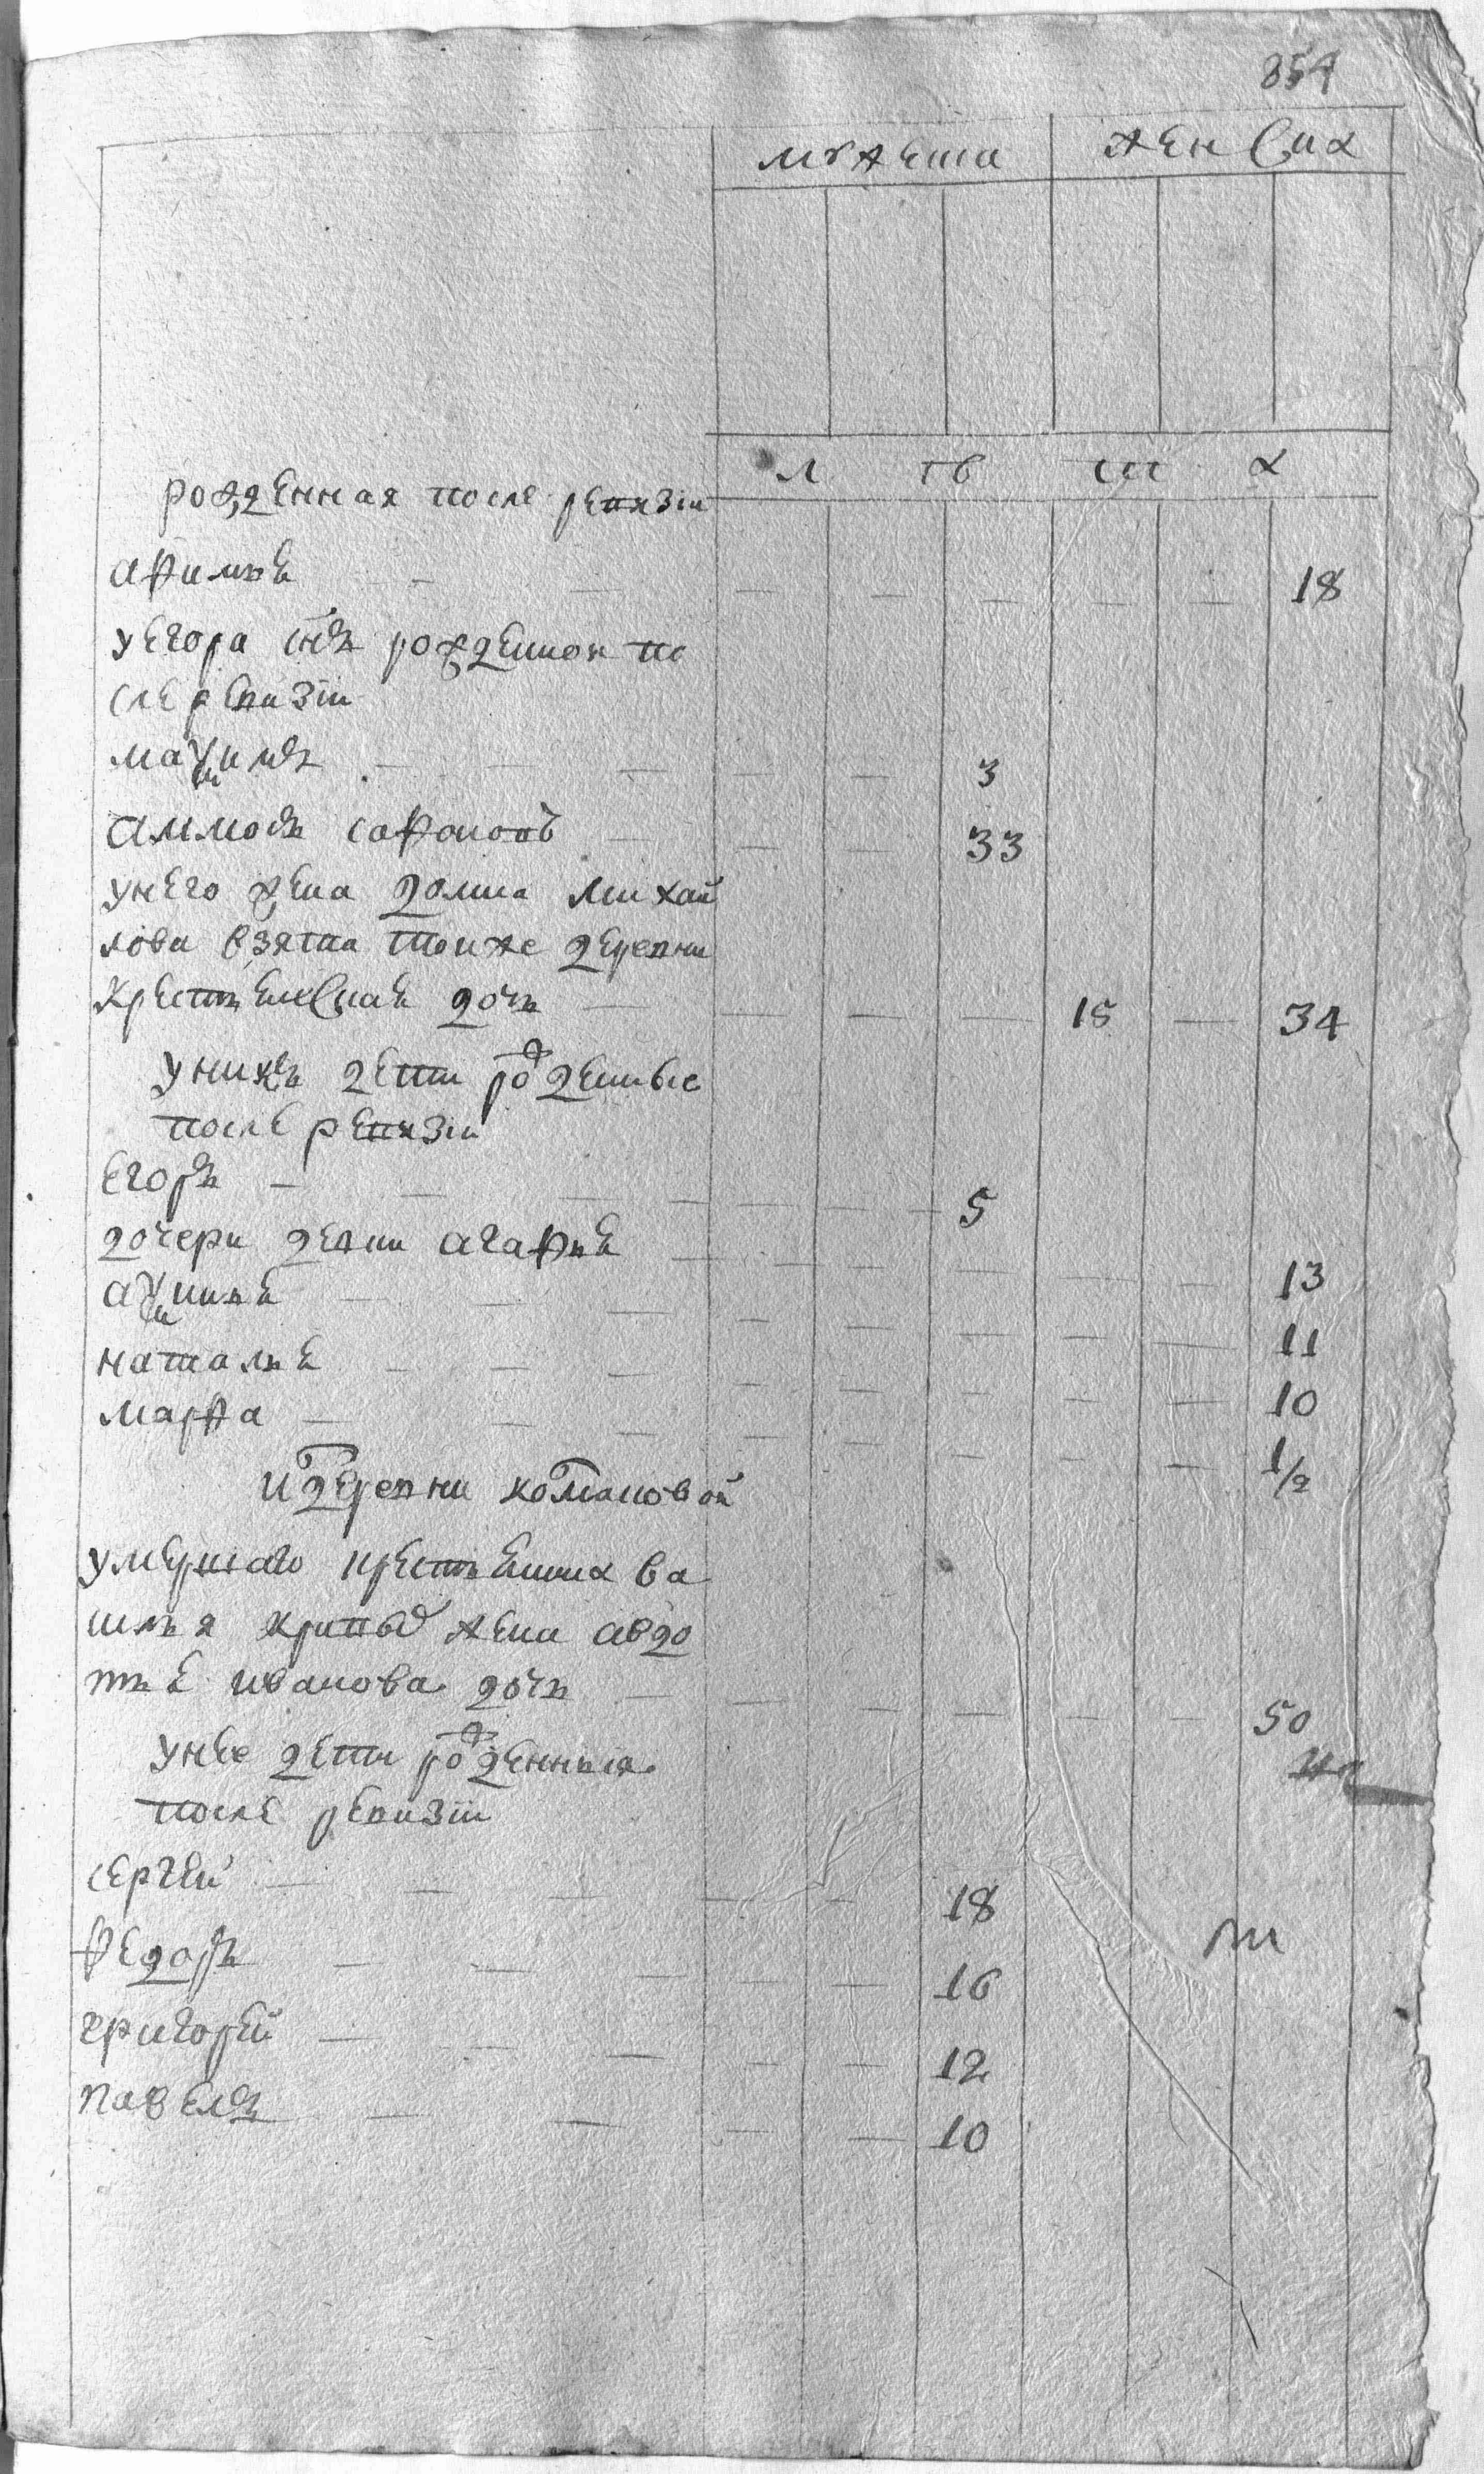 854
мужеска женска
л тв ет а
рожденная после ревизiи
афимья 18
у егора снъ рожденной по
сле ревизiи
Маѯимъ 3
Аммосъ сафоновъ 33
у него жена домна михай
лова взятая тоиже деревни
крестьянская дочь 15 34
у нихъ дети рожденные
после ревизiи
егоръ 5
дочери девки агафья 13
аѯинья 11
наталья 10
марфа 1/2
из деревни
умершаго крестьянина ва
силья жена авдо
тья иванова дочь 50
у нее дети рожденныя
после ревизiи
сергей 18
федоръ 16
григорей 12
павелъ 10